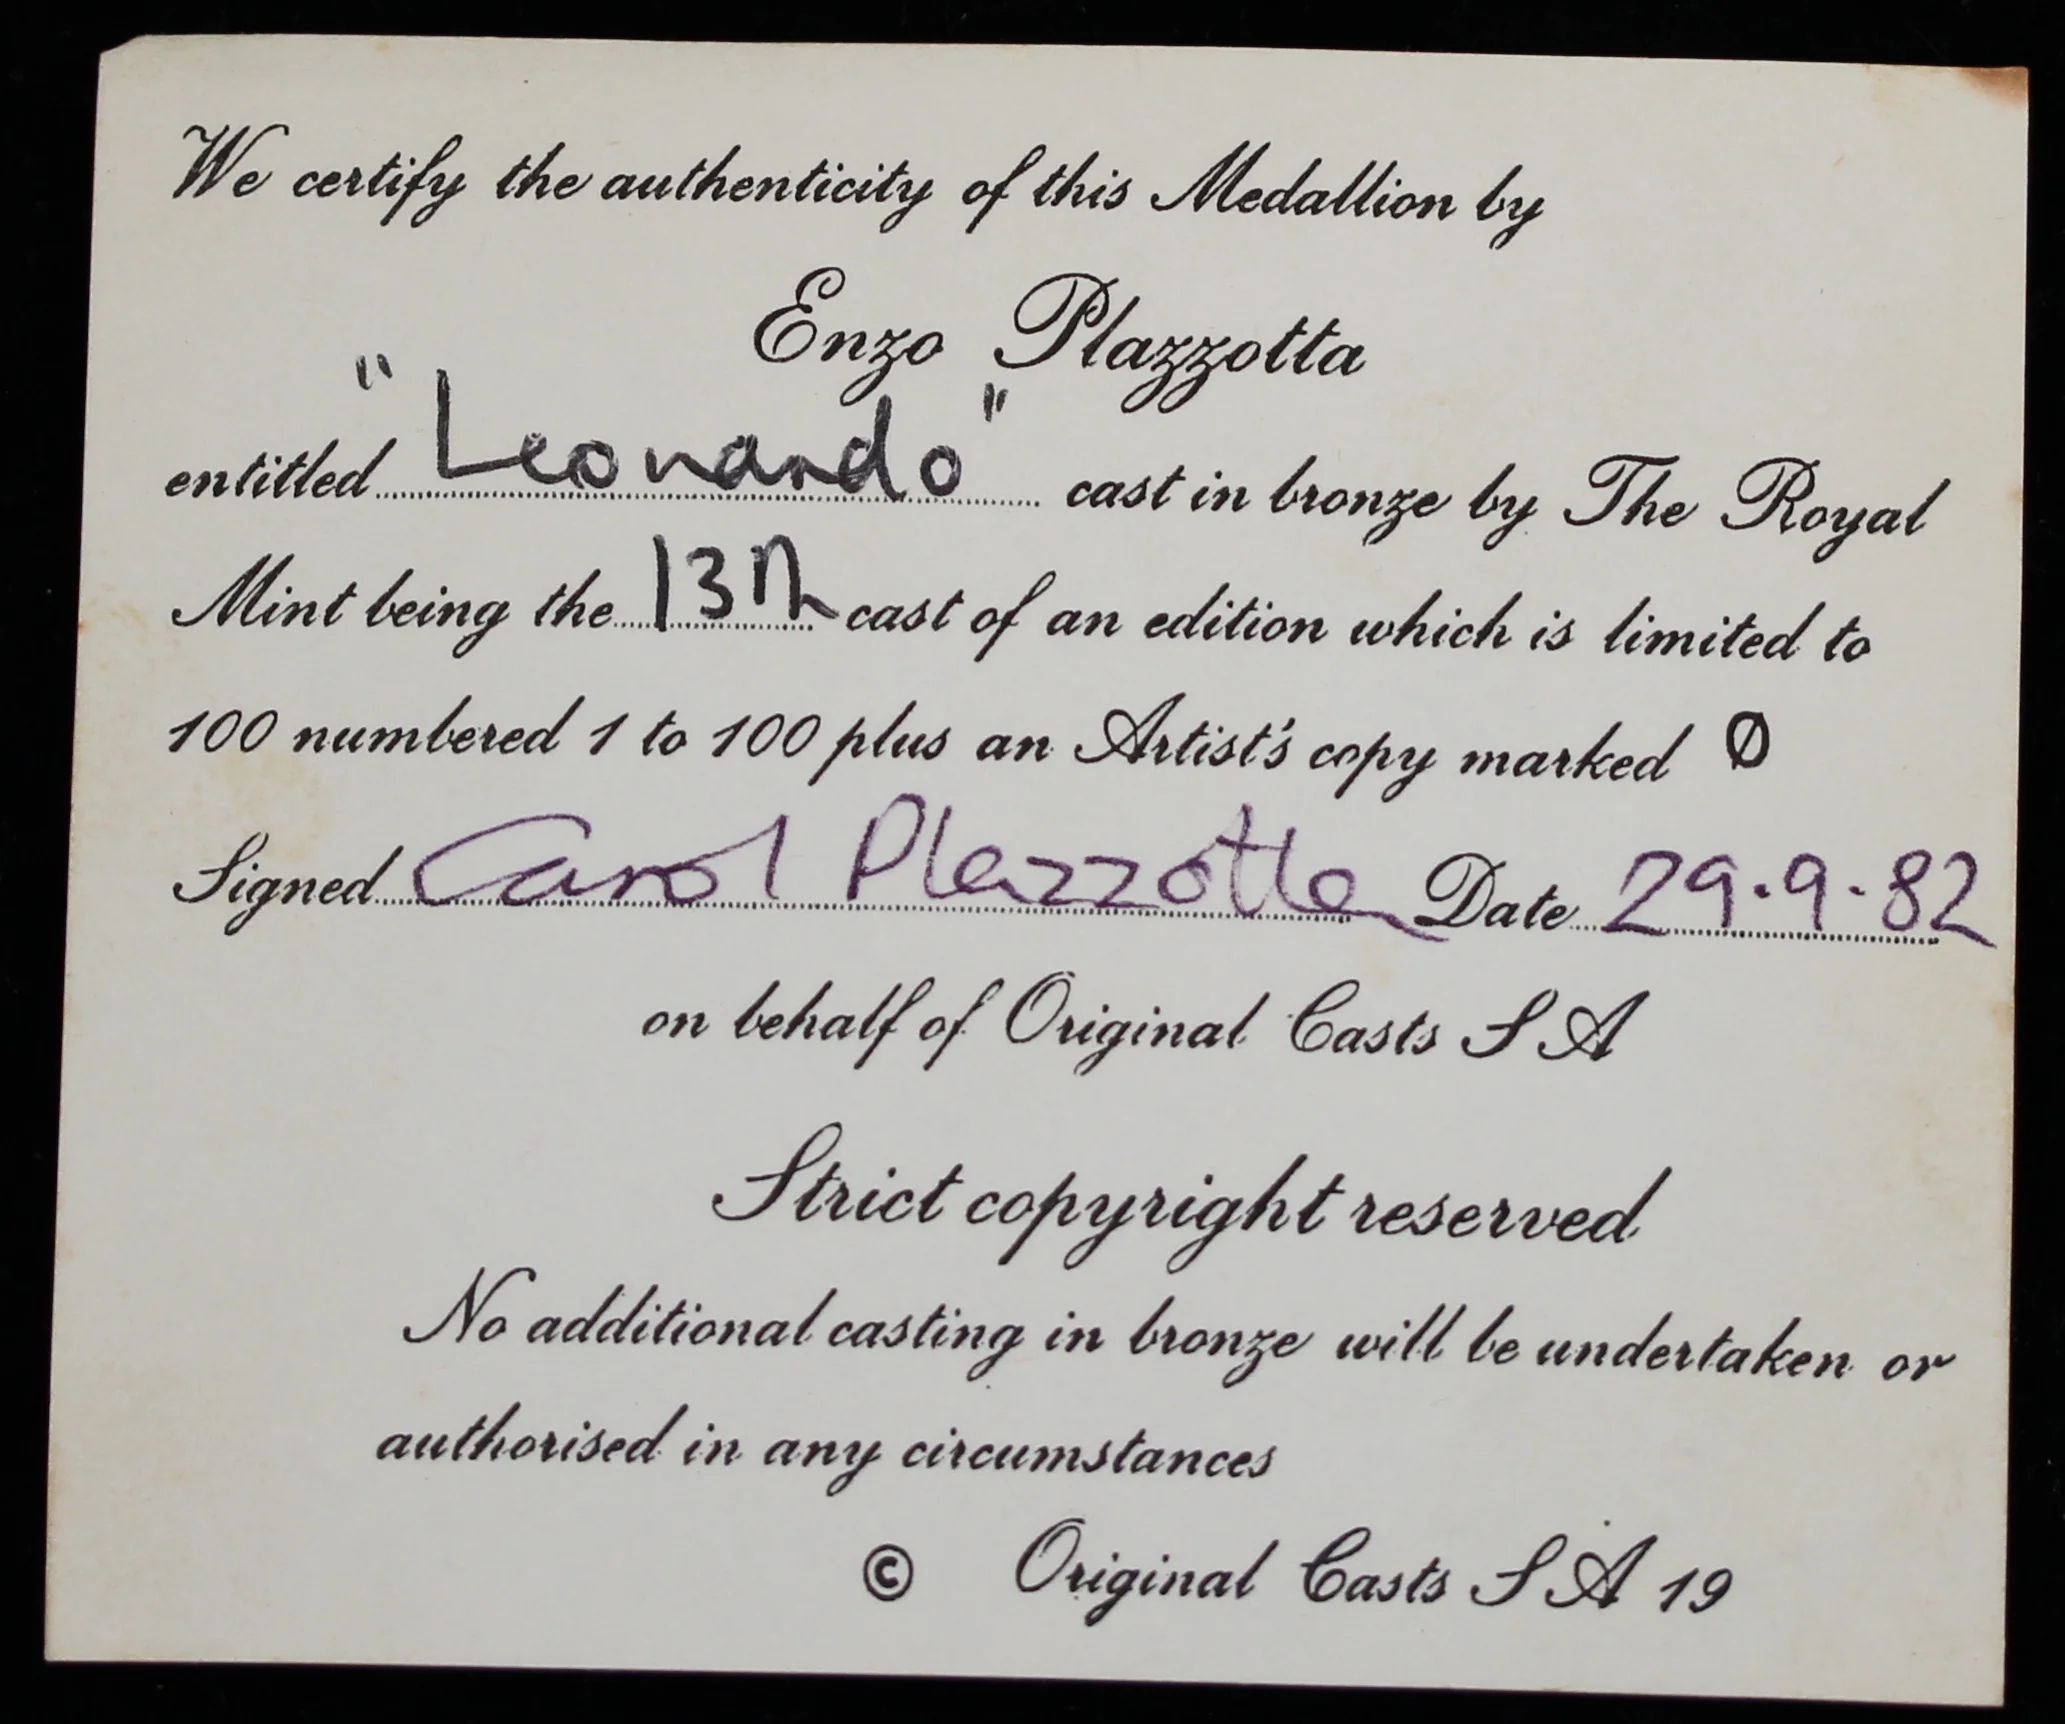 We certify the authenticity of this Medallion by
Enzo Plazzotta
entitled "Leonardo" cast in bronze by The Royal
Mint being the 13th cast of an edition which is limited to
100 numbered 1 to 100 plus an Artist's copy marked 0
Signed Carol Plazzotta Date 29.9.82
on behalf of Original Casts S A
Strict copyright reserved
No additional casting in bronze will be undertaken or
authorised in any circumstances
© Original Casts S A 19